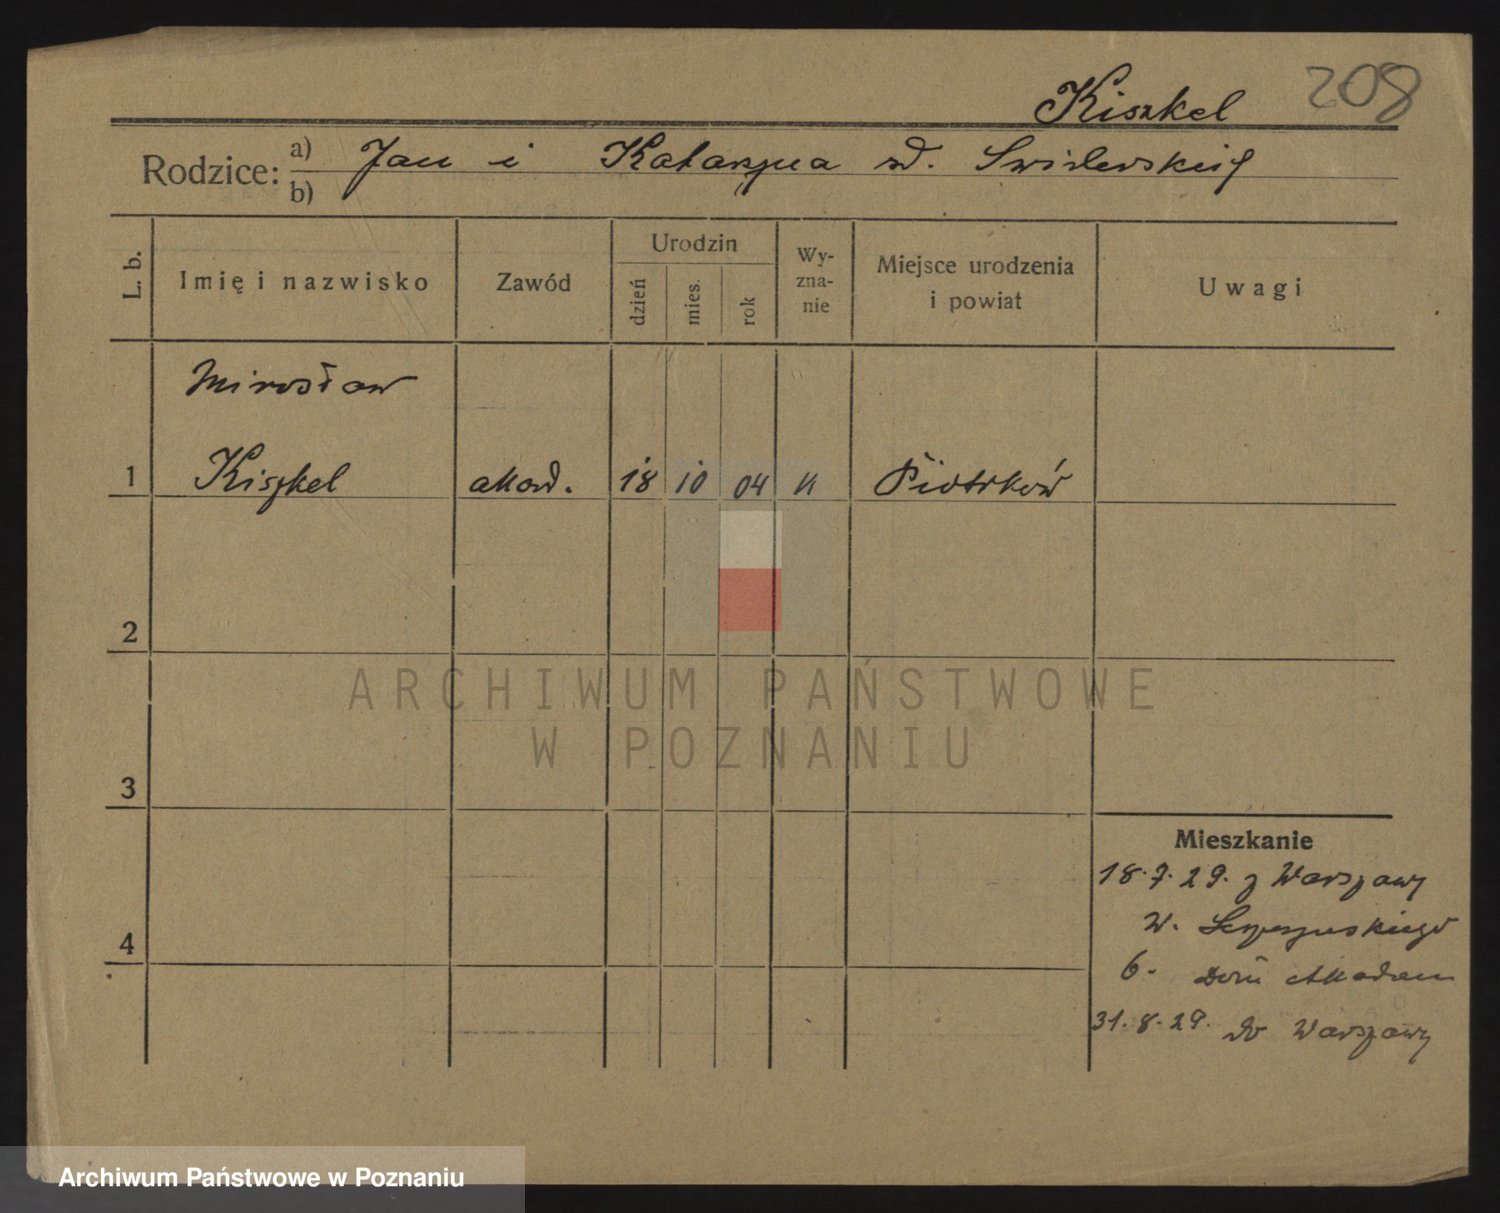 Kiszkel 208
Rodzice: a) Jan i Katarzyna zd. Swiderskich
b)
L. b.
Imię i nazwisko
Zawód
Urodzin
dzień
mies.
rok
Wy-
zna-
nie
Miejsce urodzenia
i powiat
Uwagi
Mirosław
1 Kiszkel akad. 18 10 04 k Piotrków
2
ARCHIWUM PAŃSTWOWE
W POZNANIU
3
Mieszkanie
18.7.29. z Warszawy
W.
4
6. Dom Akadem
31.8.29. do Warszawy
Archiwum Państwowe w Poznaniu